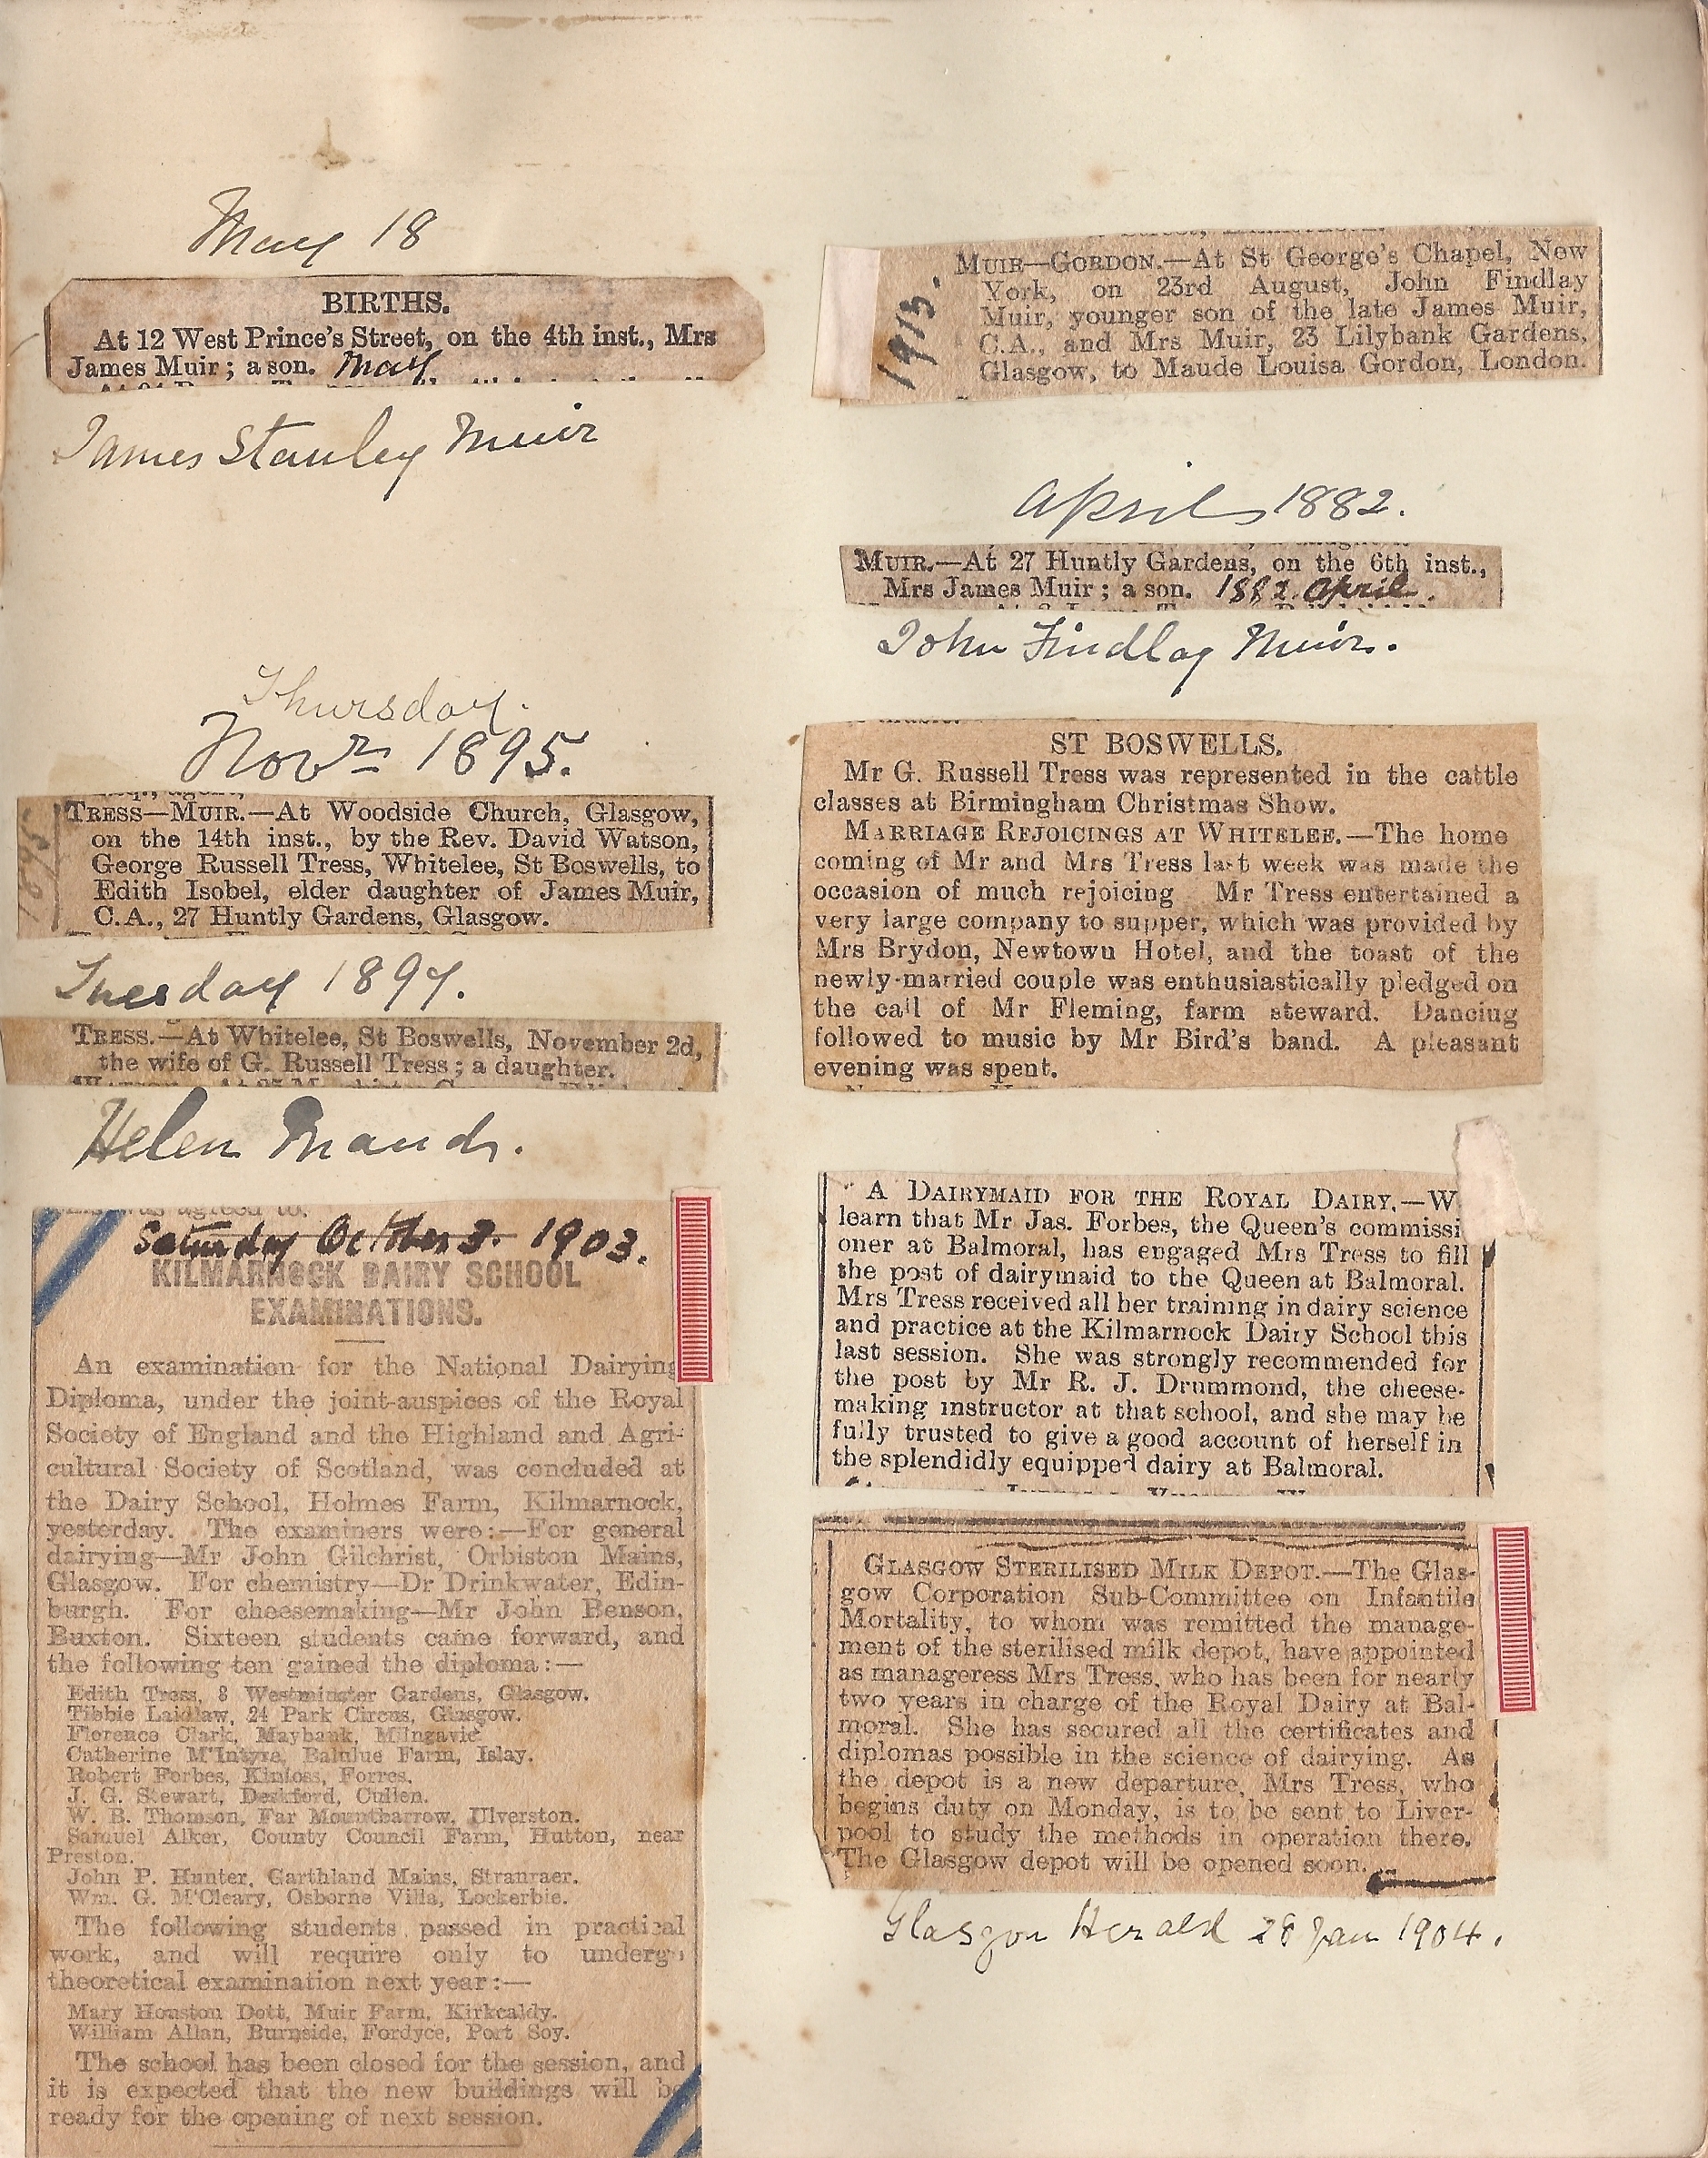 May 18
BIRTHS.
At 12 West Prince's Street, on the 4th inst., Mrs
James Muir; a son. May
James Stanley Muir
Thursday.
Novr 1895.
1895
TRESS—MUIR.—At Woodside Church, Glasgow,
on the 14th inst., by the Rev. David Watson,
George Russell Tress, Whitelee, St Boswells, to
Edith Isobel, elder daughter of James Muir,
C.A., 27 Huntly Gardens, Glasgow.
Tuesday 1897.
TRESS.—At Whitelee, St Boswells, November 2d,
the wife of G. Russell Tress; a daughter.
Helen Maud.
was agreed to.
Saturday October 3. 1903.
KILMARNOCK DAIRY SCHOOL
EXAMINATIONS.
An examination for the National Dairying
Diploma, under the joint-auspices of the Royal
Society of England and the Highland and Agri-
cultural Society of Scotland, was concluded at
the Dairy School, Holmes Farm, Kilmarnock,
yesterday. The examiners were:—For general
dairying—Mr John Gilchrist, Orbiston Mains,
Glasgow. For chemistry—Dr Drinkwater, Edin-
burgh. For cheesemaking—Mr John Benson,
Buxton. Sixteen students came forward, and
the following ten gained the diploma:—
Edith Tress, 8 Westminster Gardens, Glasgow.
Tibbie Laidlaw, 24 Park Circus, Glasgow.
Florence Clark, Maybank, Milngavie
Catherine M'Intyre, Balulue Farm, Islay.
Robert Forbes, Kinloss, Forres.
J. G. Stewart, Deskford, Cullen.
W. B. Thomson, Far Mountbarrow, Ulverston.
Samuel Alker, County Council Farm, Hutton, near
Preston.
John P. Hunter, Garthland Mains, Stranraer.
Wm. G. M'Cleary, Osborne Villa, Lockerbie.
The following students passed in practical
work, and will require only to undergo
theoretical examination next year:—
Mary Houston Dott, Muir Farm, Kirkcaldy.
William Allan, Burnside, Fordyce, Port Soy.
The school has been closed for the session, and
it is expected that the new buildings will be
ready for the opening of next session.
1913.
MUIR—GORDON.—At St George's Chapel, New
York, on 23rd August, John Findlay
Muir, younger son of the late James Muir,
C.A., and Mrs Muir, 23 Lilybank Gardens,
Glasgow, to Maude Louisa Gordon, London.
April 1882.
MUIR.—At 27 Huntly Gardens, on the 6th inst.,
Mrs James Muir; a son. 1882. April.
John Findlay Muir.
ST BOSWELLS.
Mr G. Russell Tress was represented in the cattle
classes at Birmingham Christmas Show.
MARRIAGE REJOICINGS AT WHITELEE.—The home
coming of Mr and Mrs Tress last week was made the
occasion of much rejoicing Mr Tress entertained a
very large company to supper, which was provided by
Mrs Brydon, Newtown Hotel, and the toast of the
newly-married couple was enthusiastically pledged on
the call of Mr Fleming, farm steward. Dancing
followed to music by Mr Bird's band. A pleasant
evening was spent.
A DAIRYMAID FOR THE ROYAL DAIRY.—W
learn that Mr Jas. Forbes, the Queen's commissi
oner at Balmoral, has engaged Mrs Tress to fill
the post of dairymaid to the Queen at Balmoral.
Mrs Tress received all her training in dairy science
and practice at the Kilmarnock Dairy School this
last session. She was strongly recommended for
the post by Mr R. J. Drummond, the cheese-
making instructor at that school, and she may be
fully trusted to give a good account of herself in
the splendidly equipped dairy at Balmoral.
GLASGOW STERILISED MILK DEPOT.—The Glas-
gow Corporation Sub-Committee on Infantile
Mortality, to whom was remitted the manage-
ment of the sterilised milk depot, have appointed
as manageress Mrs Tress, who has been for nearly
two years in charge of the Royal Dairy at Bal-
moral. She has secured all the certificates and
diplomas possible in the science of dairying. As
the depot is a new departure, Mrs Tress, who
begins duty on Monday, is to be sent to Liver-
pool to study the methods in operation there.
The Glasgow depot will be opened soon.
Glasgow Herald 28 Jan 1904.